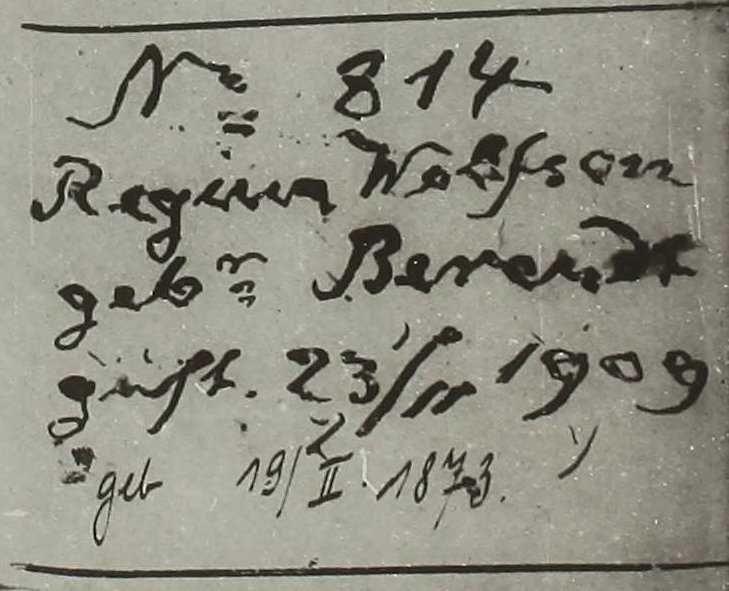 No 814
Regina Wolfson
geb. Berendt
gest. 23/11 1909
geb 19/II. 1873.